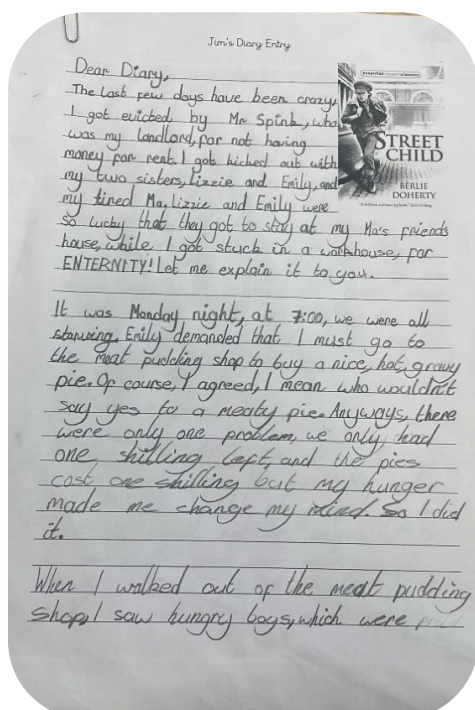 Jim's Diary Entry
Dear Diary,
The last few days have been crazy,
I got evicted by Mr Spink, who
was my landlord, for not having
money for rent. I got kicked out with
my two sisters, Lizzie and Emily, and
my tired Ma. Lizzie and Emily were
so lucky that they got to stay at my Ma's friends
house, while I got stuck in a workhouse, for
ENTERNITY! Let me explain it to you.
essential modern classics
STREET
CHILD
BERLIE
DOHERTY
It was Monday night, at 7:00, we were all
starving. Emily demanded that I must go to
the meat pudding shop to buy a nice, hot, gravy
pie. Of course, I agreed, I mean who wouldn't
say yes to a meaty pie. Anyways, there
were only one problem, we only had
one shilling left, and the pies
cost one shilling but my hunger
made me change my mind. So I did
it.
When I walked out of the meat pudding
shop, I saw hungry boys, which were